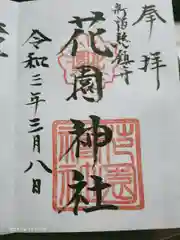 奉拝
新宿総鎮守
花園神社
令和三年三月八日